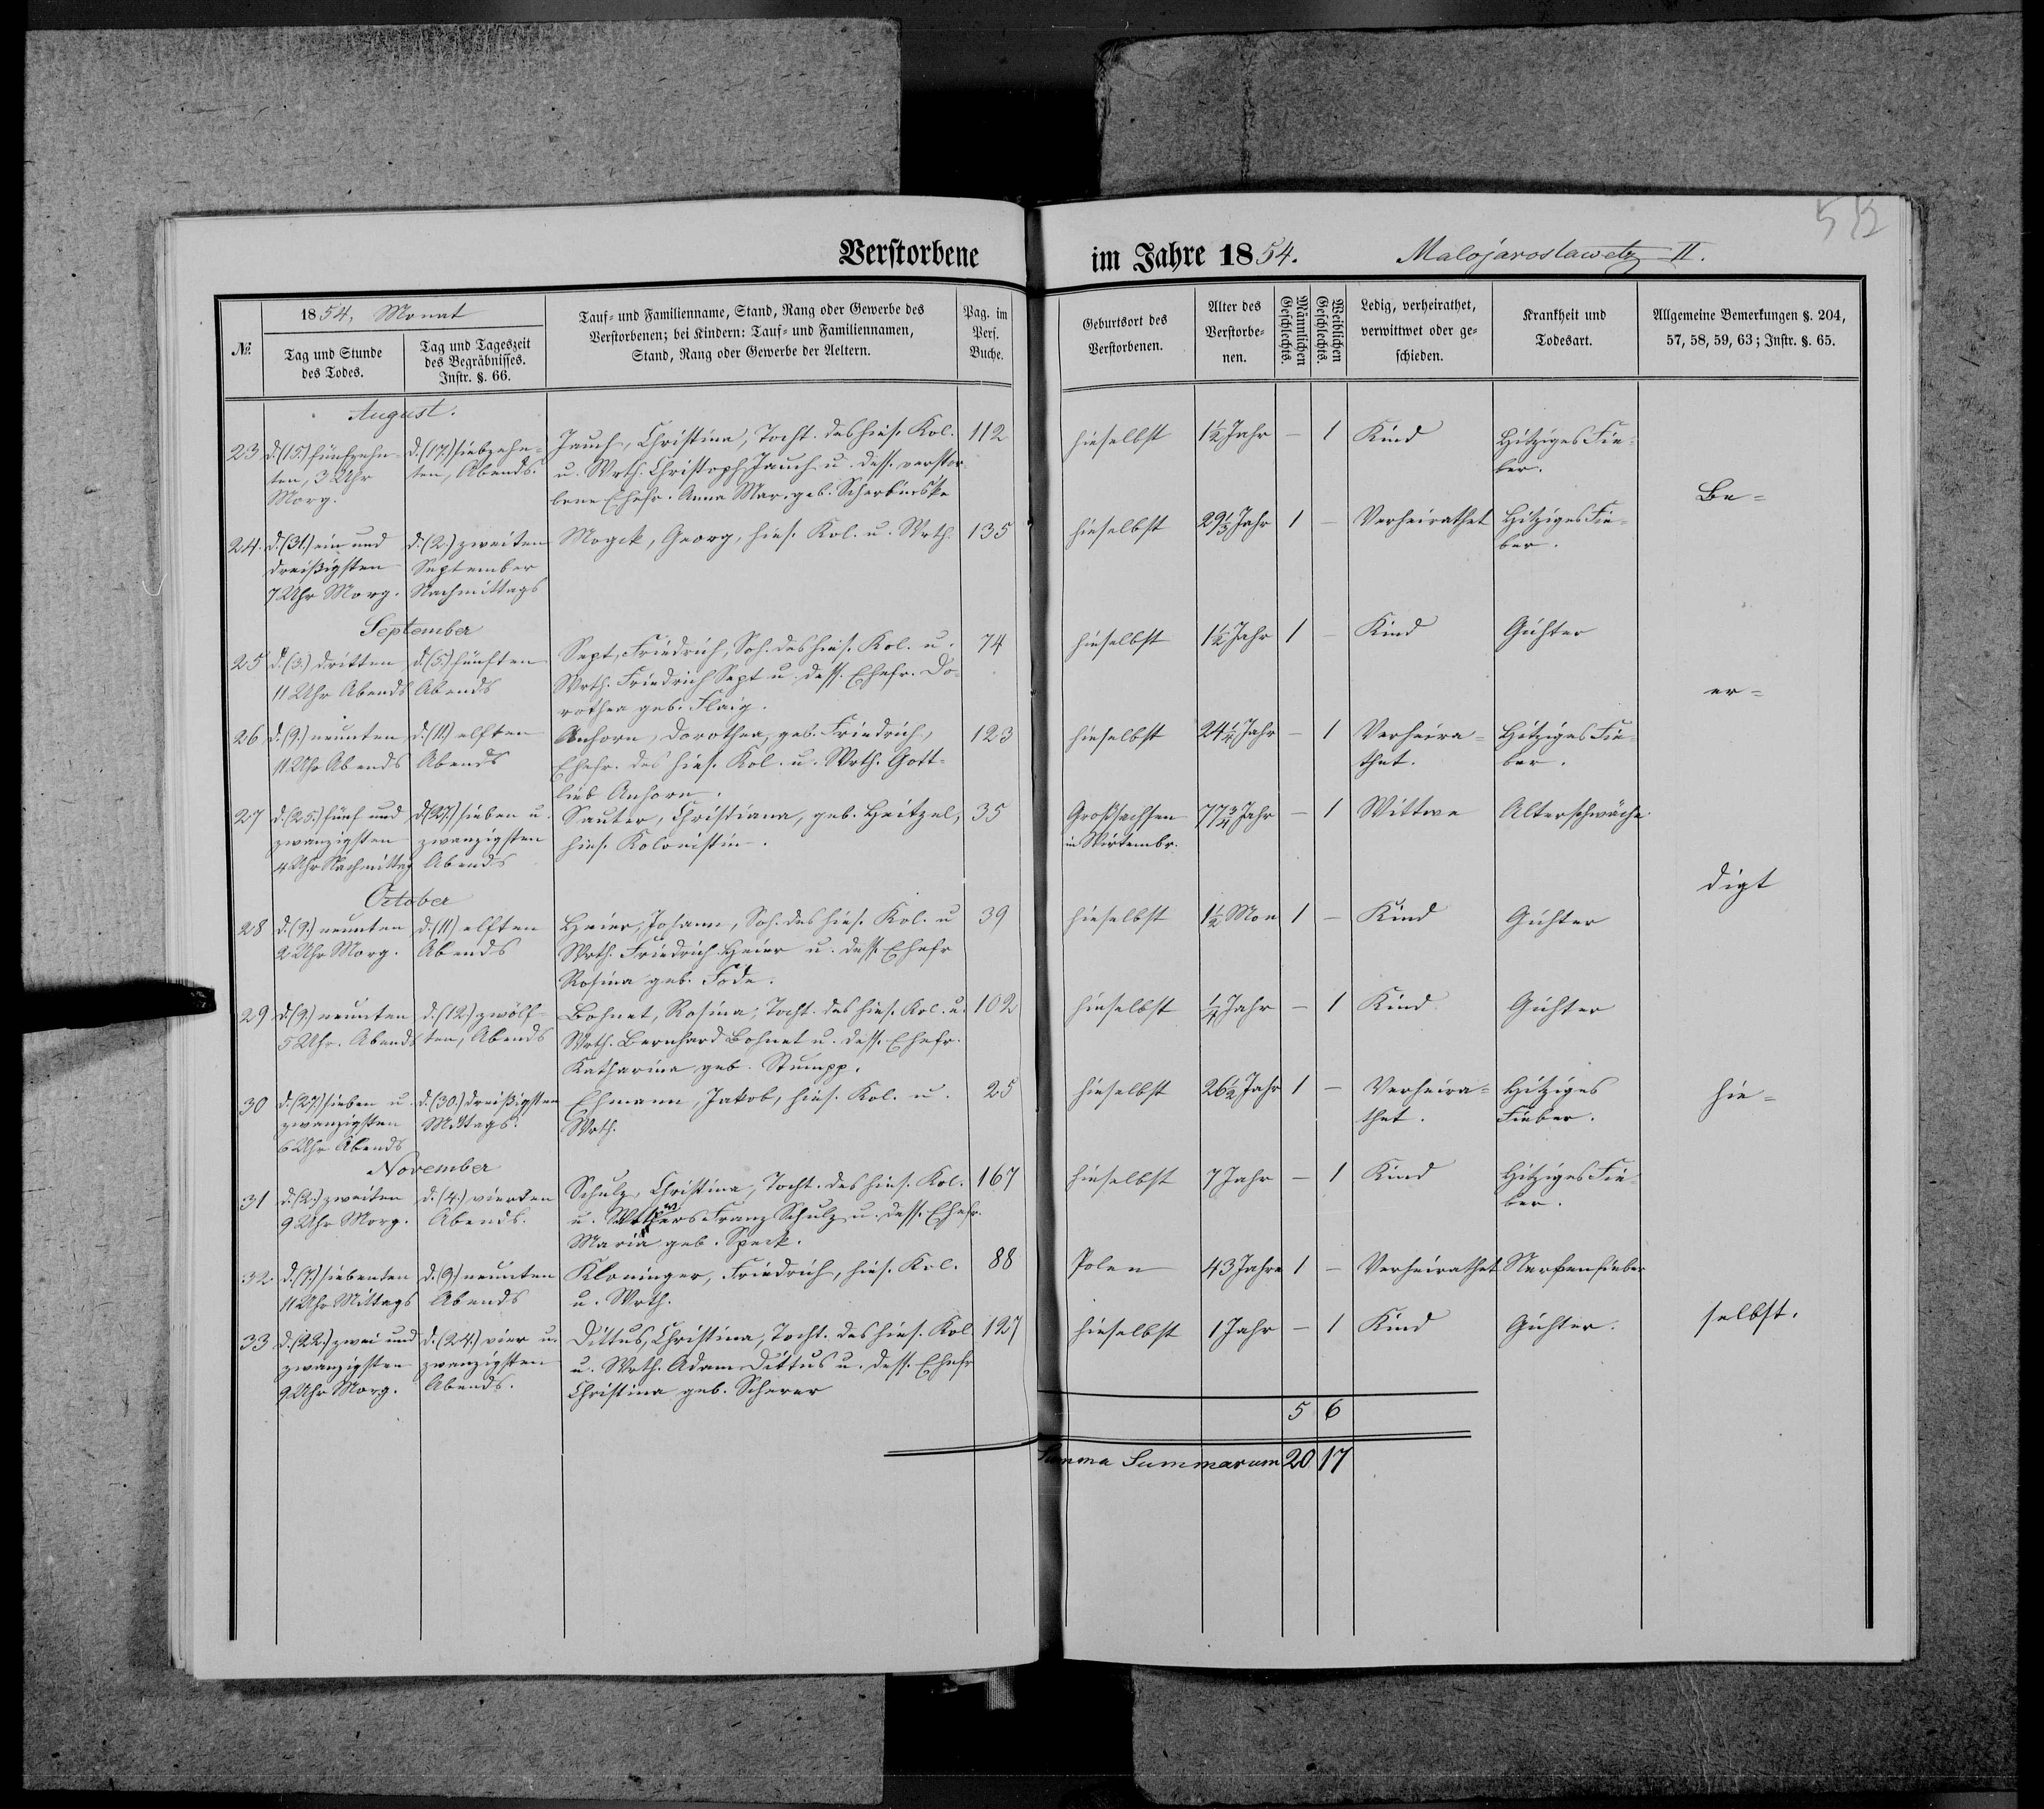 572
Verstorbene im Jahre 1854. Malojaroslawetz II.
№. 1854, Monat
Tag und Stunde des Todes.
Tag und Tageszeit des Begräbnisses. Instr. §. 66.
Tauf- und Familienname, Stand, Rang oder Gewerbe des
Verstorbenen; bei Kindern: Tauf- und Familiennamen,
Stand, Rang oder Gewerbe der Aeltern.
Pag. im Pers. Buche.
Geburtsort des Verstorbenen.
Alter des Verstorbe-nen.
Männlichen Geschlechts.
Weiblichen Geschlechts.
Ledig, verheirathet, verwittwet oder ge-schieden.
Krankheit und Todesart.
Allgemeine Bemerkungen §. 204, 57, 58, 59, 63; Instr. §. 65.
August.
23 d. (15.) fünfzehn- d. (17.) siebzehn- Jauch, Christina, Tocht. des hies. Kol. 112 hieselbst 1½ Jahr – 1 Kind Hitziges Fie-
ten, 3 Uhr ten, Abends. u. Wrth. Christoph Jauch u. dess. verstor- ber.
Morg. bene Ehefr. Anna Mar. geb. Scherbinske
Be-
24. d. (31.) ein und d. (2.) zweiten Mogck, Georg, hies. Kol. u. Wrth. 135 hieselbst 29½ Jahr 1 – Verheirathet Hitziges Fie-
dreißigsten September ber.
7 Uhr Morg. Nachmittags
September
25 d. (3.) dritten d. (5.) fünften Sept, Friedrich, Soh. des hies. Kol. u. 74 hieselbst 1½ Jahr 1 – Kind Gichter
11 Uhr Abends Abends Wrth. Friedrich Sept u. dess. Ehefr. Do-
rothea geb. Flaig.
er-
26 d. (9.) neunten d. (11.) elften Anhorn, Dorothea, geb. Friedrich, 123 hieselbst 24¼ Jahr – 1 Verheira- Hitziges Fie-
11 Uhr Abends Abends Ehefr. des hies. Kol. u. Wrth. Gott- thet. ber.
lieb Anhorn.
27 d. (25.) fünf und d. (27.) sieben u. Sauter, Christiana, geb. Heitzel, 35 Großsachsen 77¾ Jahr – 1 Wittwe Alterschwäche
zwanzigsten zwanzigsten hies. Kolonistin. in Wirtembr.
4 Uhr Nachmittag Abends
digt
October
28 d. (9.) neunten d. (11) elften Heier, Johann, Soh. des hies. Kol. u 39 hieselbst 1½ Mon 1 – Kind Gichter
2 Uhr Morg. Abends Wrth. Friedrich Heier u. dess. Ehefr
Rosina geb. Fode.
29 d. (9.) neunten d. (12.) zwölf- Bohnet, Rosina, Tocht. des hies. Kol. u. 102 hieselbst ¼ Jahr – 1 Kind Gichter
5 Uhr. Abends ten, Abends Wrth. Bernhard Bohnet u. dess. Ehefr.
Katharina geb. Stumpp.
30 d. (27.) sieben u. d. (30.) dreißigsten Ehmann, Jakob, hies. Kol. u. 25 hieselbst 26½ Jahr 1 – Verheira- Hitziges hie-
zwanzigsten Mittags. Wrth. thet. Fieber.
6 Uhr Abends
November
31 d. (2.) zweiten d. (4.) vierten Schulz, Christina, Tocht. des hies. Kol. 167 hieselbst 7 Jahr – 1 Kind Hitziges Fie-
9 Uhr Morg. Abends. u. Franz Schulz u. dess. Ehefr. ber.
Maria geb. Speck.
32. d. (7.) siebenten d. (9) neunten Kloninger, Friedrich, hies. Kol. 88 Polen 43 Jahre 1 – Verheirathet Nerfenfieber
11 Uhr Mittags Abends u. Wrth.
33 d. (22.) zwei und d. (24.) vier u. Dittus, Christina, Tocht. des hies. Kol. 127 hieselbst 1 Jahr – 1 Kind Gichter. selbst.
zwanzigsten zwanzigsten u. Wrth. Adam Dittus u. dess. Ehefr
9 Uhr Morg. Abends. Christina geb. Scherer
5 6
Summa Summarum 20 17